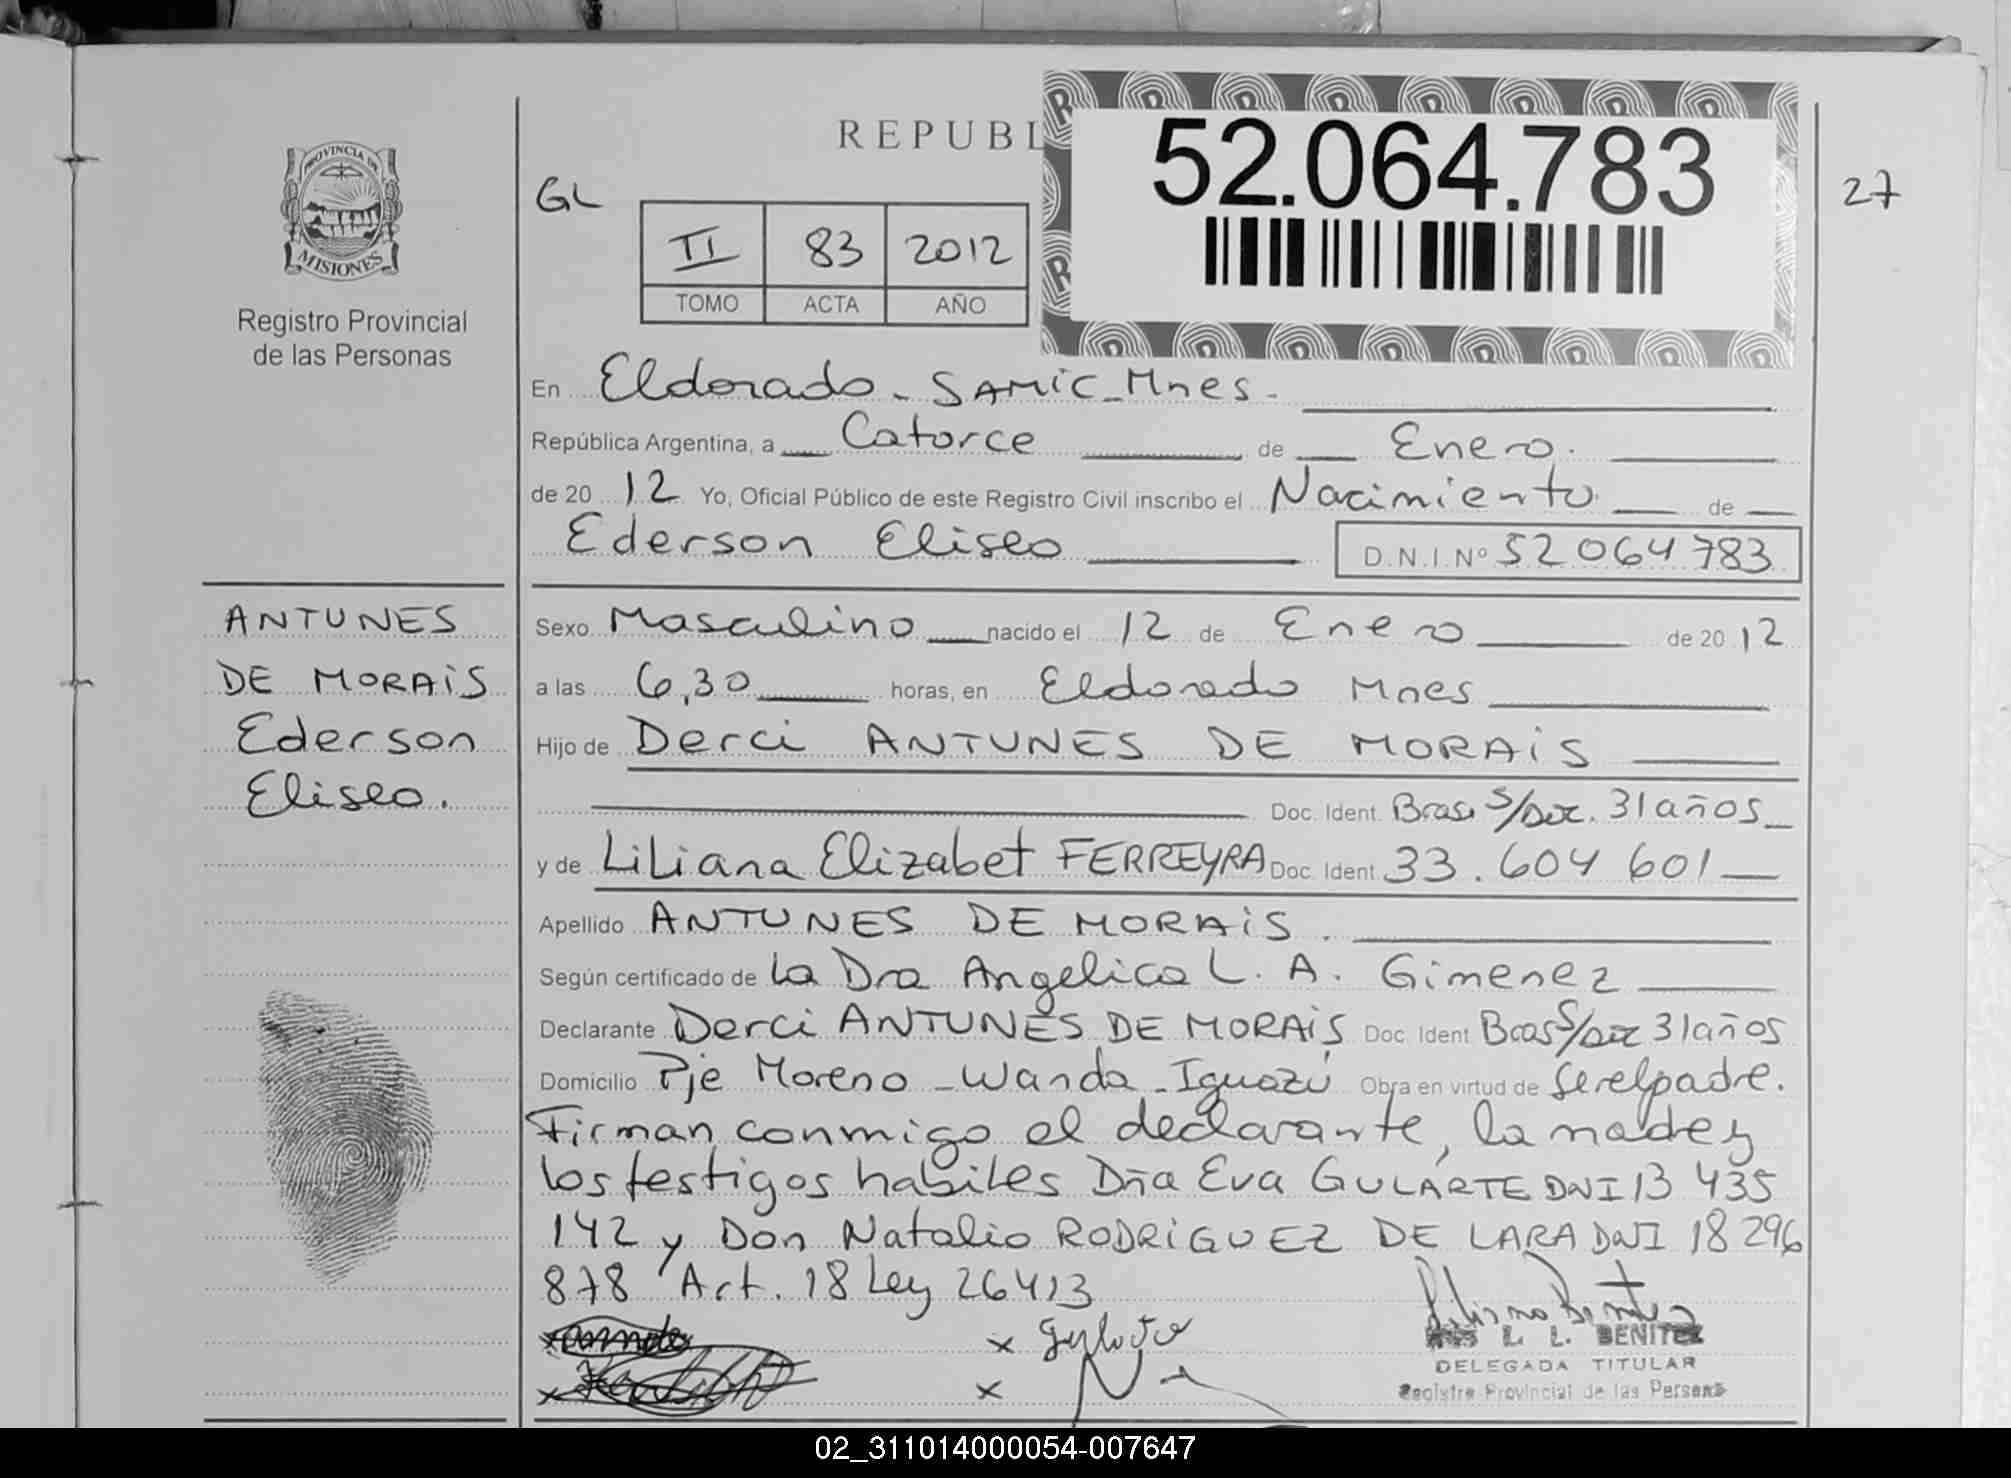 PROVINCIA DE
MISIONES
Registro Provincial
de las Personas
REPUBL
52.064.783
27
GL
II 83 2012
TOMO ACTA AÑO
En Eldorado - SAMIC - Mnes -
República Argentina, a Catorce de Enero.
de 2012 Yo, Oficial Público de este Registro Civil inscribo el Nacimiento de
Ederson Eliseo D.N.I.Nº 52 064 783
ANTUNES
DE MORAIS
Ederson
Eliseo.
Sexo Masculino nacido el 12 de Enero de 2012
a las 6,30 horas, en Eldorado Mnes
Hijo de Derci ANTUNES DE MORAIS
Doc. Ident. Bras. S/Doc. 31 años
y de Liliana Elizabet FERREYRA Doc. Ident. 33.604 601
Apellido ANTUNES DE MORAIS.
Según certificado de la Dra Angelica L. A. Gimenez
Declarante Derci ANTUNES DE MORAIS Doc. Ident Bras S/Doc 31 años
Domicilio Pje Moreno - Wanda - Iguazú Obra en virtud de ser el padre.
Firman conmigo el declarante, la madre y
los testigos habiles Dña Eva GULARTE DNI 13 435
142 y Don Natalio RODRIGUEZ DE LARA DNI 18 296
878 Art. 18 Ley 26413
x x Gularte
x x
L. L. BENITEZ
DELEGADA TITULAR
Registro Provincial de las Personas
02_311014000054-007647